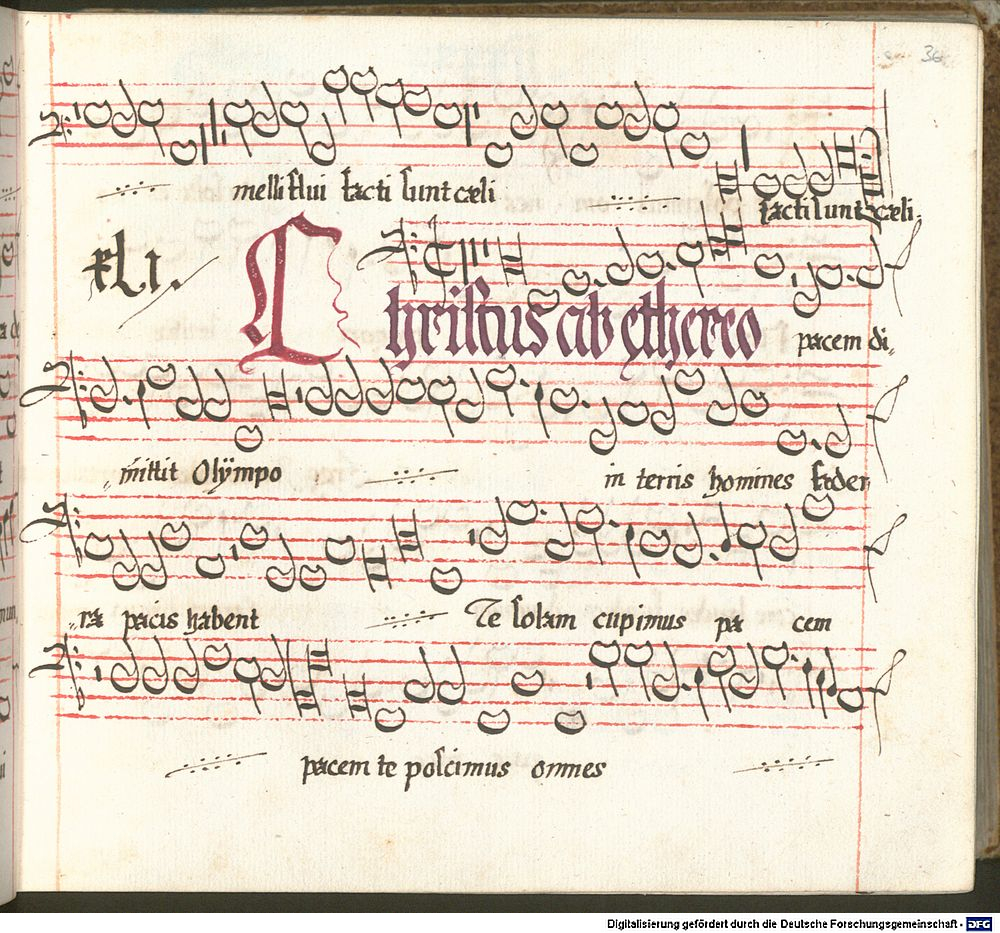 36
mellif lui facti sunt cæli facti sunt cæli
XLI. Christus ab ethereo pacem di„
„mittit Olÿmpo in terris homines fœder
„ra pacis habent Te solam cupimus pa cem
pacem te poscimus omnes
Digitalisierung gefördert durch die Deutsche Forschungsgemeinschaft - DFG